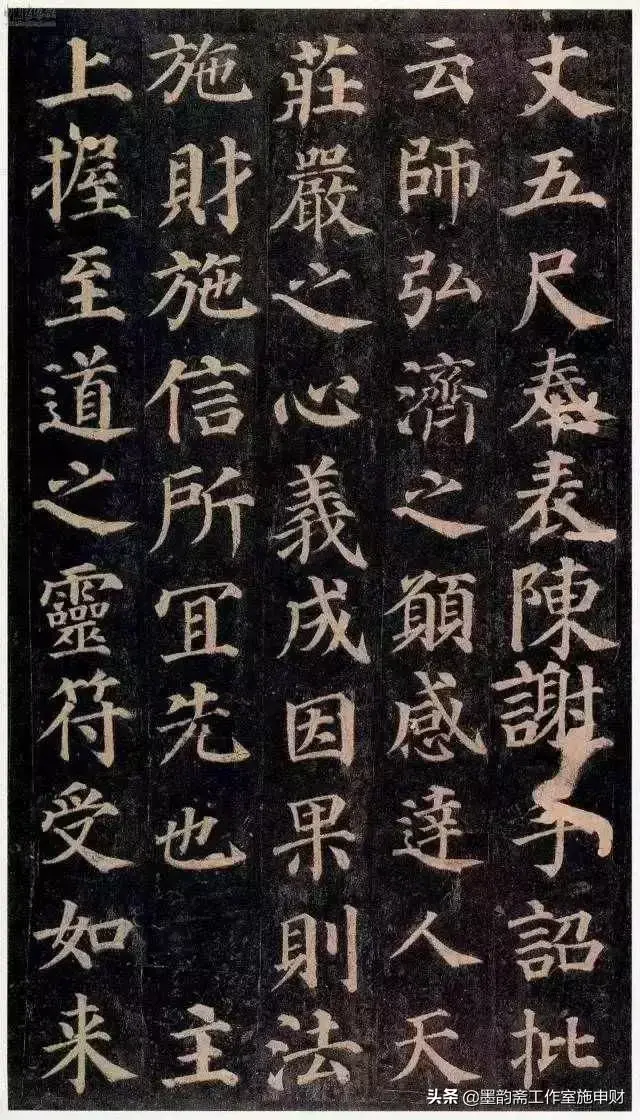 丈五尺奉表陳謝手詔批
云師弘濟之願感達人天
莊嚴之心義成因果則法
施財施信所宜先也 主
上握至道之靈符受如来
头条 @墨韵斋工作室施申财